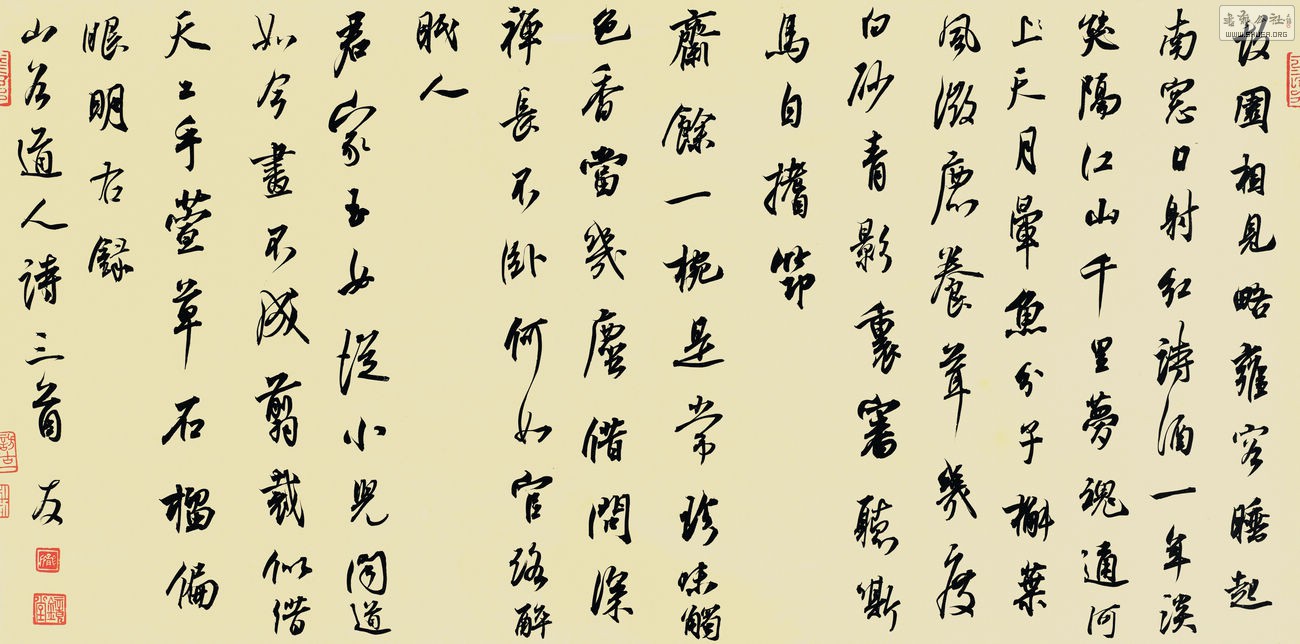 故園相見略雍容睡起
南窓日射紅詩酒一年談
笑隔江山千里夢魂通何
上天月暈魚分子槲葉
風微鹿養茸幾度
白砂青影裏審聽嘶
馬自搘筇
齋餘一椀是常珍味觸
色香當幾塵借問深
禪長不卧何如官路醉
眠人
君家玉女從小見聞道
如今畫不成翦裁似借
天上手萱草石榴偏
眼明右録
山谷道人詩三首 友